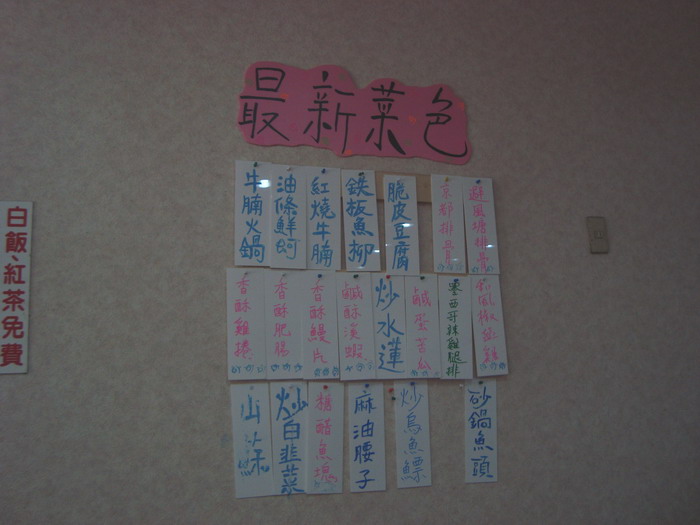 最新菜色
牛腩火鍋
油條鮮蚵
紅燒牛腩
鐵板魚柳
脆皮豆腐
京都排骨
避風塘排骨
香酥雞捲
香酥肥腸
香酥鰻片
鹹酥溪蝦
炒水蓮
鹹蛋苦瓜
墨西哥辣雞腿排
山蘇
炒白韭菜
糖醋魚塊
麻油腰子
炒烏魚鰾
砂鍋魚頭
白飯、紅茶免費